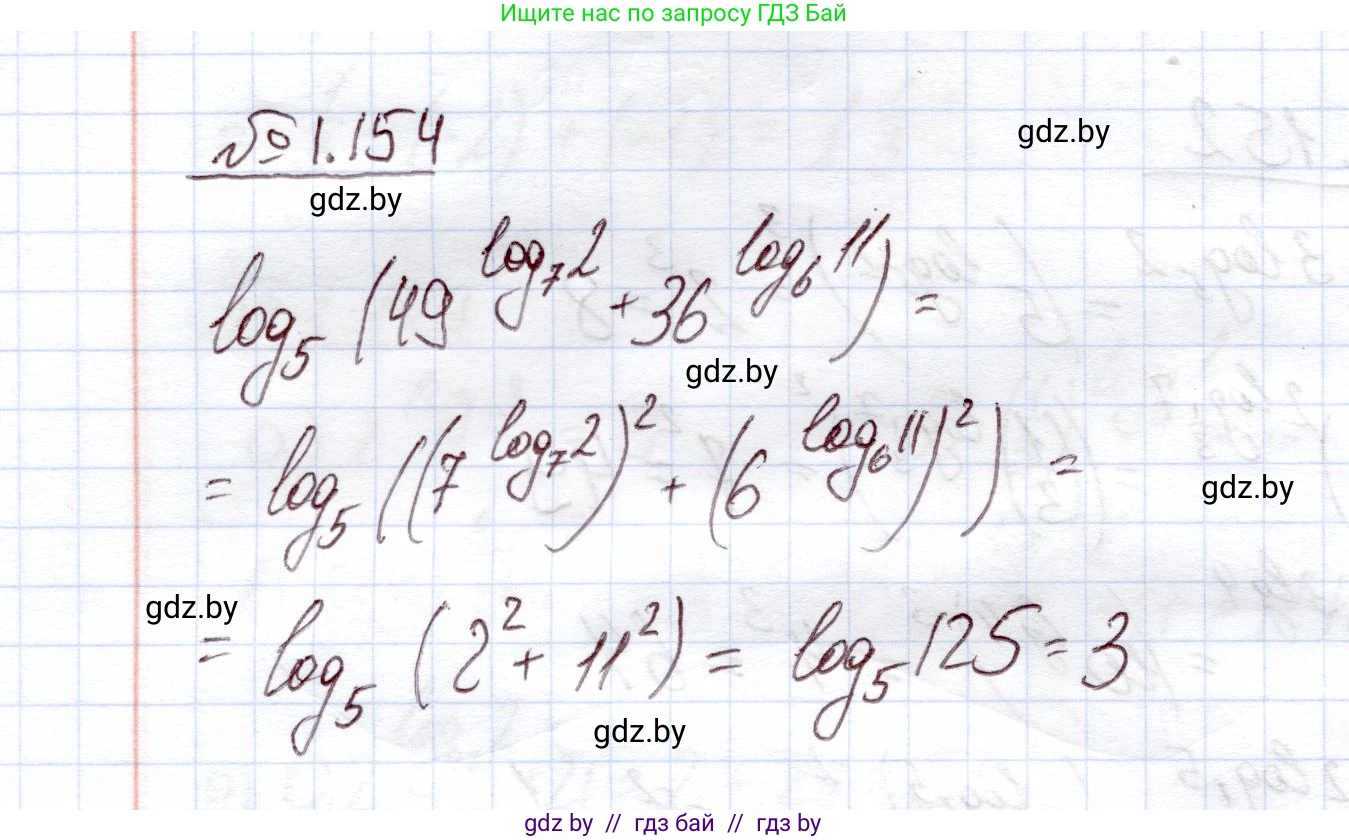 Ищите нас по запросу ГДЗ Бай
№ 1.154
gdz.by
gdz.by
log₅ (49^(log₇2) + 36^(log₆11)) =
gdz.by
= log₅ ((7^(log₇2))² + (6^(log₆11))²) =
gdz.by
gdz.by
= log₅ (2² + 11²) = log₅ 125 = 3
gdz.by
gdz by // гдз бай // гдз by